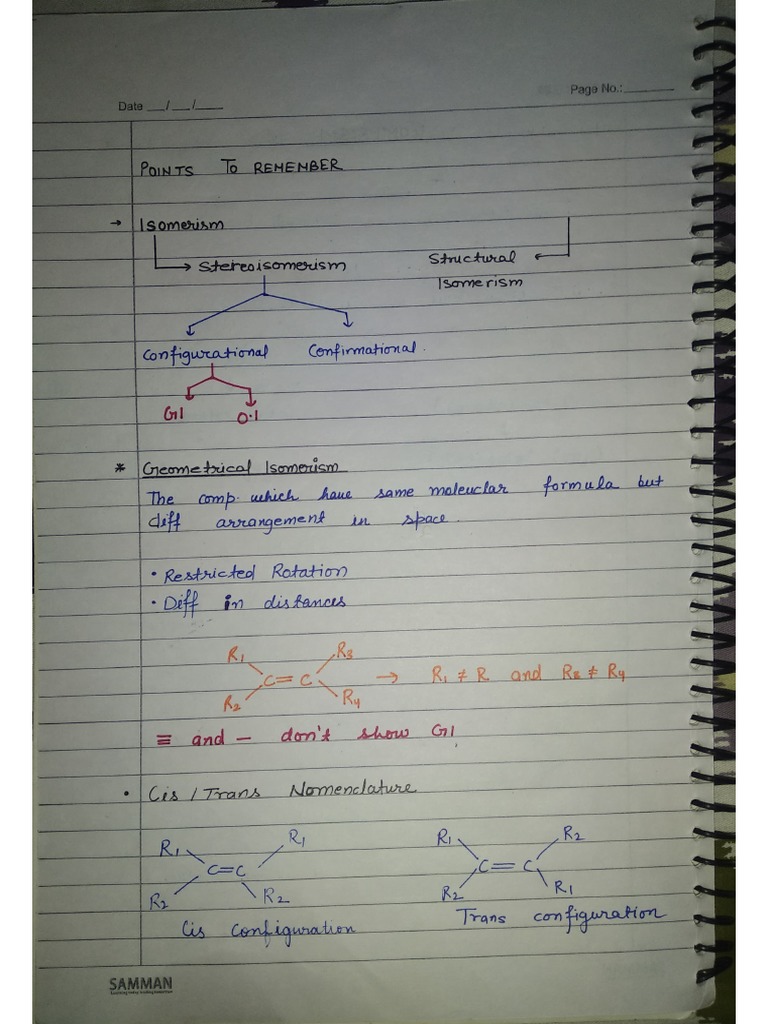 Date __/__/____
Page No.:________
POINTS TO REMEMBER
→ Isomerism
Stereoisomerism
Structural
Isomerism
Configurational Confirmational.
GI O.I
* Geometrical Isomerism
The comp. which have same moleuclar formula but
diff arrangement in space.
• Restricted Rotation
• Diff in distances
R1 R3
C=C → R1 ≠ R and R3 ≠ R4
R2 R4
≡ and – don't show GI
• Cis / Trans Nomenclature
R1 R1 R1 R2
C=C C=C
R2 R2 R2 R1
Cis configuration Trans configuration
SAMMAN